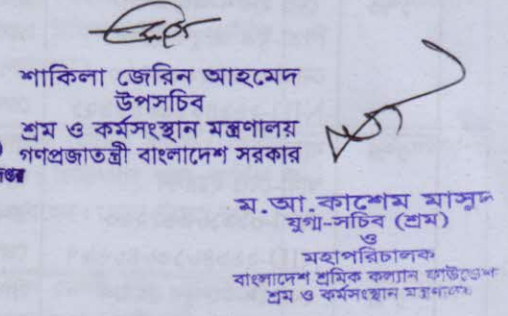 শাকিলা জেরিন আহমেদ
উপসচিব
শ্রম ও কর্মসংস্থান মন্ত্রণালয়
গণপ্রজাতন্ত্রী বাংলাদেশ সরকার
ম.আ.কাশেম মাসুদ
যুগ্ম-সচিব (শ্রম)
ও
মহাপরিচালক
বাংলাদেশ শ্রমিক কল্যান ফাউন্ডেশন
শ্রম ও কর্মসংস্থান মন্ত্রণালয়